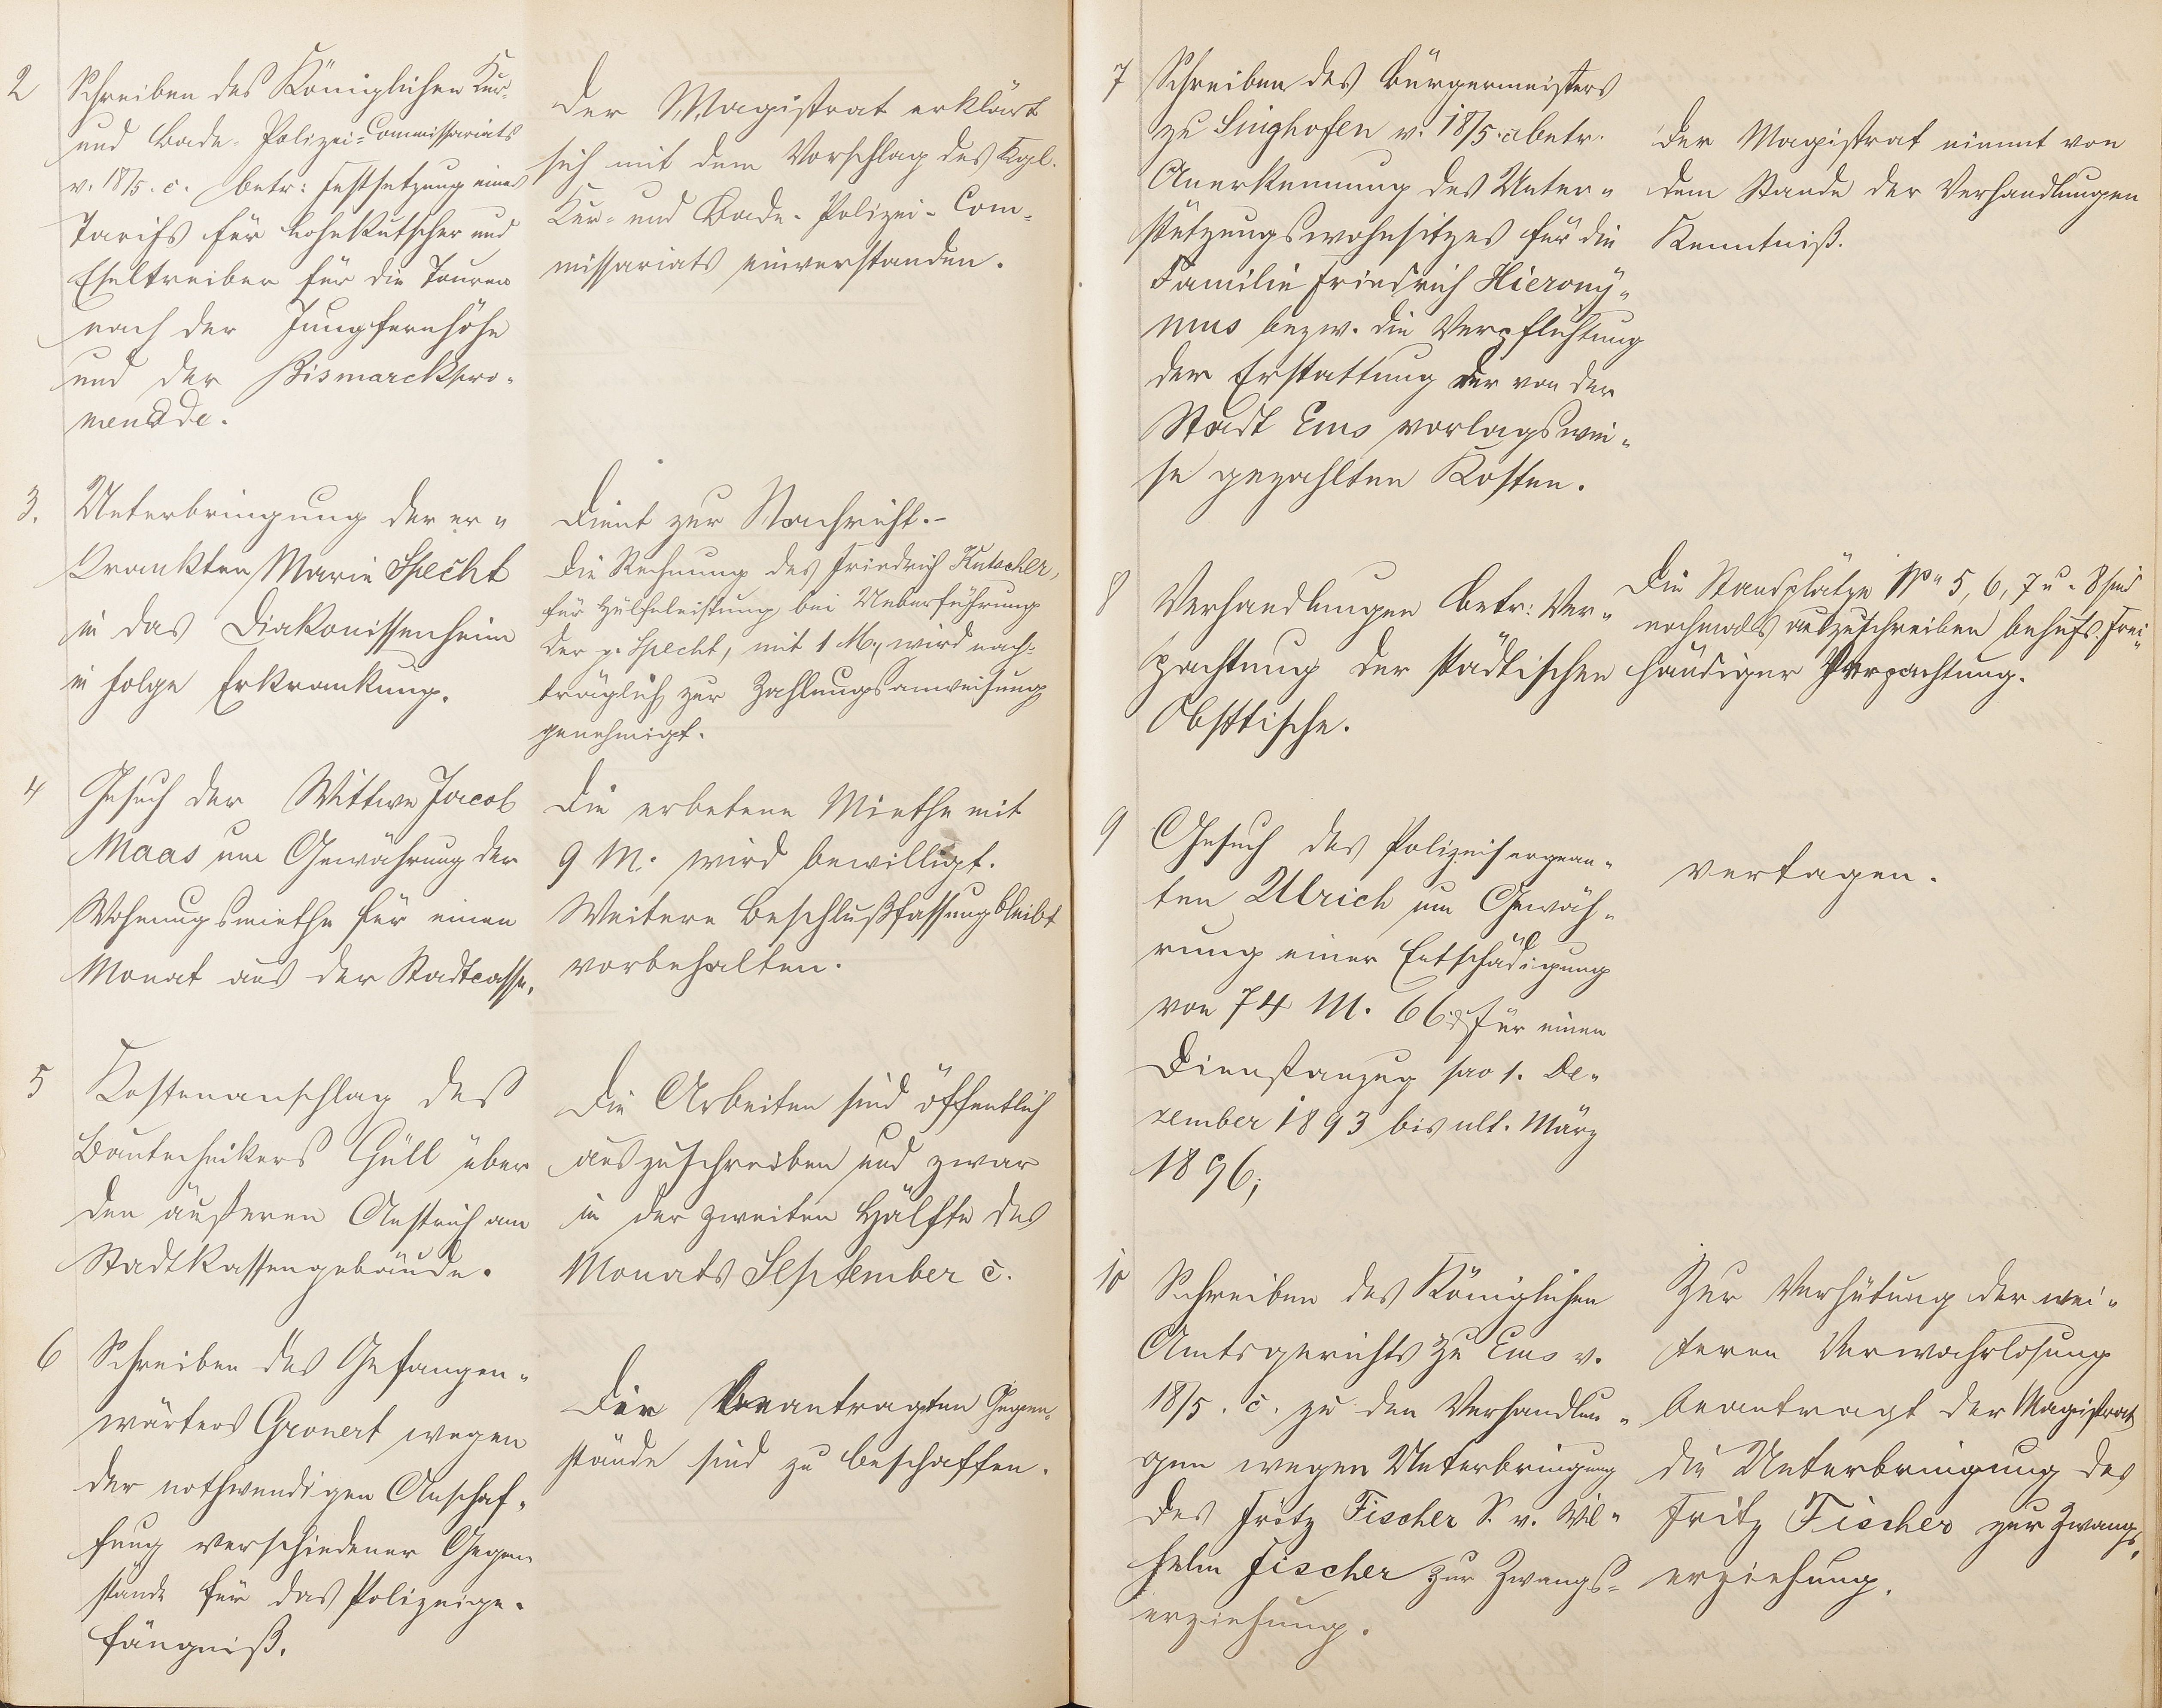 2
Schreiben des Königlichen Kur-
und Bade-Polizei-Commissariats
v. 18/5. c. betr: Festsetzung eines
Tarifs für Lohnkutscher und
Eseltreiber für die Touren
nach der Jungfernhöhe
und der Bismarckpro-
menade.
Der Magistrat erklärt
sich mit dem Vorschlag des Kgl.
Kur- und Bade-Polizei-Com-
missariats einverstanden.
3.
Unterbringung der er-
krankten Marie Specht
in das Diakonissenheim
in Folge Erkrankung.
Dient zur Nachricht.-
Die Rechnung des Friedrich Kutscher,
für Hülfeleistung bei Ueberführung
der p. Specht, mit 1 M., wird nach-
träglich zur Zahlungsanweisung
genehmigt.
4
Gesuch der Wittwe Jacob
Maas um Gewährung der
Wohnungsmiethe für einen
Monat aus der Stadtcasse.
Die erbetene Miethe mit
9 M. wird bewilligt.
Weitere Beschlußfassung bleibt
vorbehalten.
5
Kostenanschlag des
Bautechnikers Güll über
den äußeren Anstrich am
Stadtkassengebäude.
Die Arbeiten sind öffentlich
auszuschreiben und zwar
in der zweiten Hälfte des
Monats September c.
6
Schreiben des Gefangen-
wärters Gronert wegen
der nothwendigen Anschaf-
fung verschiedener Gegen
stände für das Polizeige-
fängniß.
Die beantragten Gegen-
stände sind zu beschaffen.
7
Schreiben des Bürgermeisters
zu Singhofen v. 18/5. c betr.
Anerkennung des Unter-
stützungswohnsitzes für die
Familie Friedrich Hierony-
mus bezw. die Verpflichtung
der Erstattung der von der
Stadt Ems vorlagswei-
se gezahlten Kosten.
Der Magistrat nimmt von
dem Stande der Verhandlungen
Kenntniß.
8
Verhandlungen betr: Ver-
pachtung der städtischen
Obsttische.
Die Standplätze No 5, 6, 7 u. 8 sind
nochmals auszuschreiben behufs frei-
händiger Verpachtung.
9
Gesuch des Polizeisergean-
ten Ulrich um Gewäh-
rung einer Entschädigung
von 74 M. 66 ₰ für einen
Dienstanzug pro 1. De-
zember 1893 bis ult. März
1896;
vertagen.
10
Schreiben des Königlichen
Amtsgerichts zu Ems v.
18/5. c. zu den Verhandlun-
gen wegen Unterbringung
des Fritz Fischer S. v. Wil-
helm Fischer zur Zwangs-
erziehung.
Zur Verhütung der wei-
teren Verwahrlosung
beantragt der Magistrat
die Unterbringung des
Fritz Fischer zur Zwangs-
erziehung.